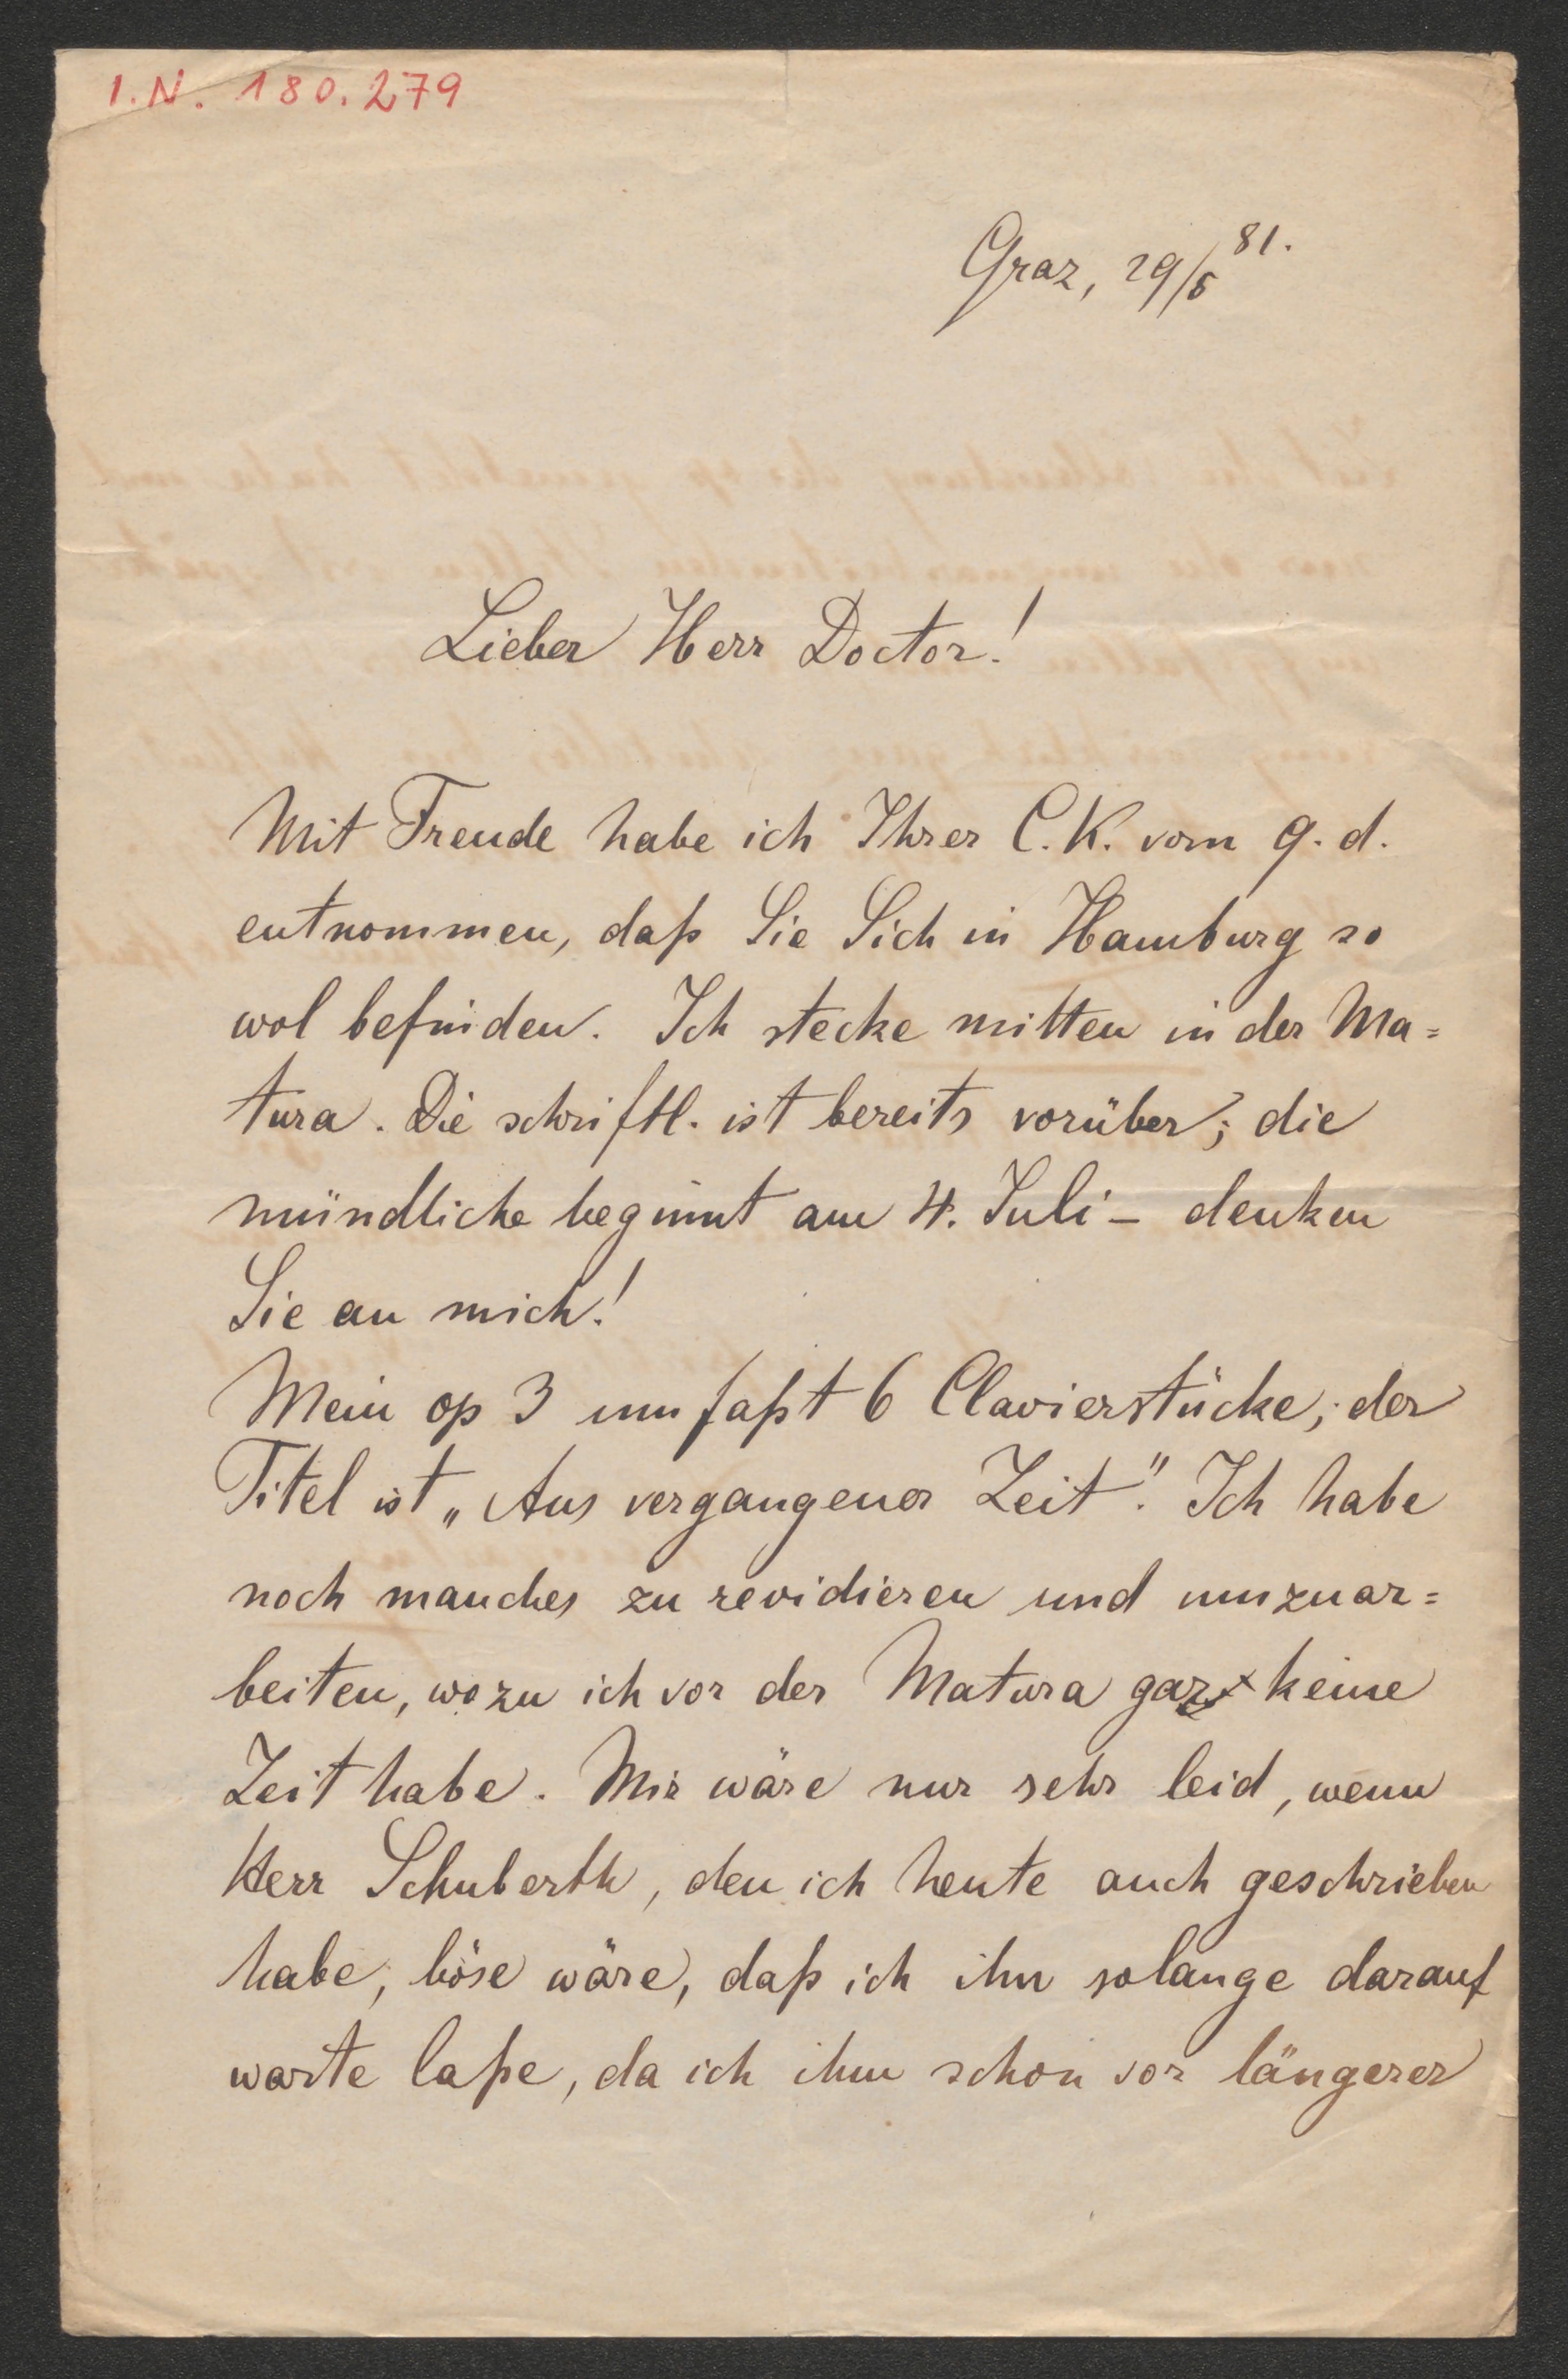 I.N. 180.279
Graz, 29/5 81.
Lieber Herr Doctor!
Mit Freude habe ich Ihrer C. K. vom 9. d.
entnommen, daß Sie Sich in Hamburg so
wol befinden. Ich stecke mitten in der Ma=
tura. Die schriftl. ist bereits vorüber; die
mündliche beginnt am 4. Juli – denken
Sie an mich!
Mein op 3 umfaßt 6 Clavierstücke; der
Titel ist „Aus vergangener Zeit". Ich habe
noch manches zu revidieren und umzuar=
beiten, wozu ich vor der Matura gar keine
Zeit habe. Mir wäre nur sehr leid, wenn
Herr Schuberth, den ich heute auch geschrieben
habe, böse wäre, daß ich ihn solange darauf
warte laße, da ich ihm schon vor längerer